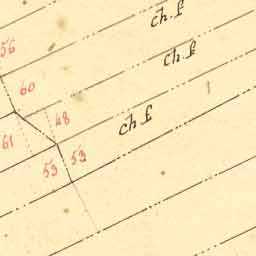 ch. f
56
ch. f
60
48
ch. f
61
53
53